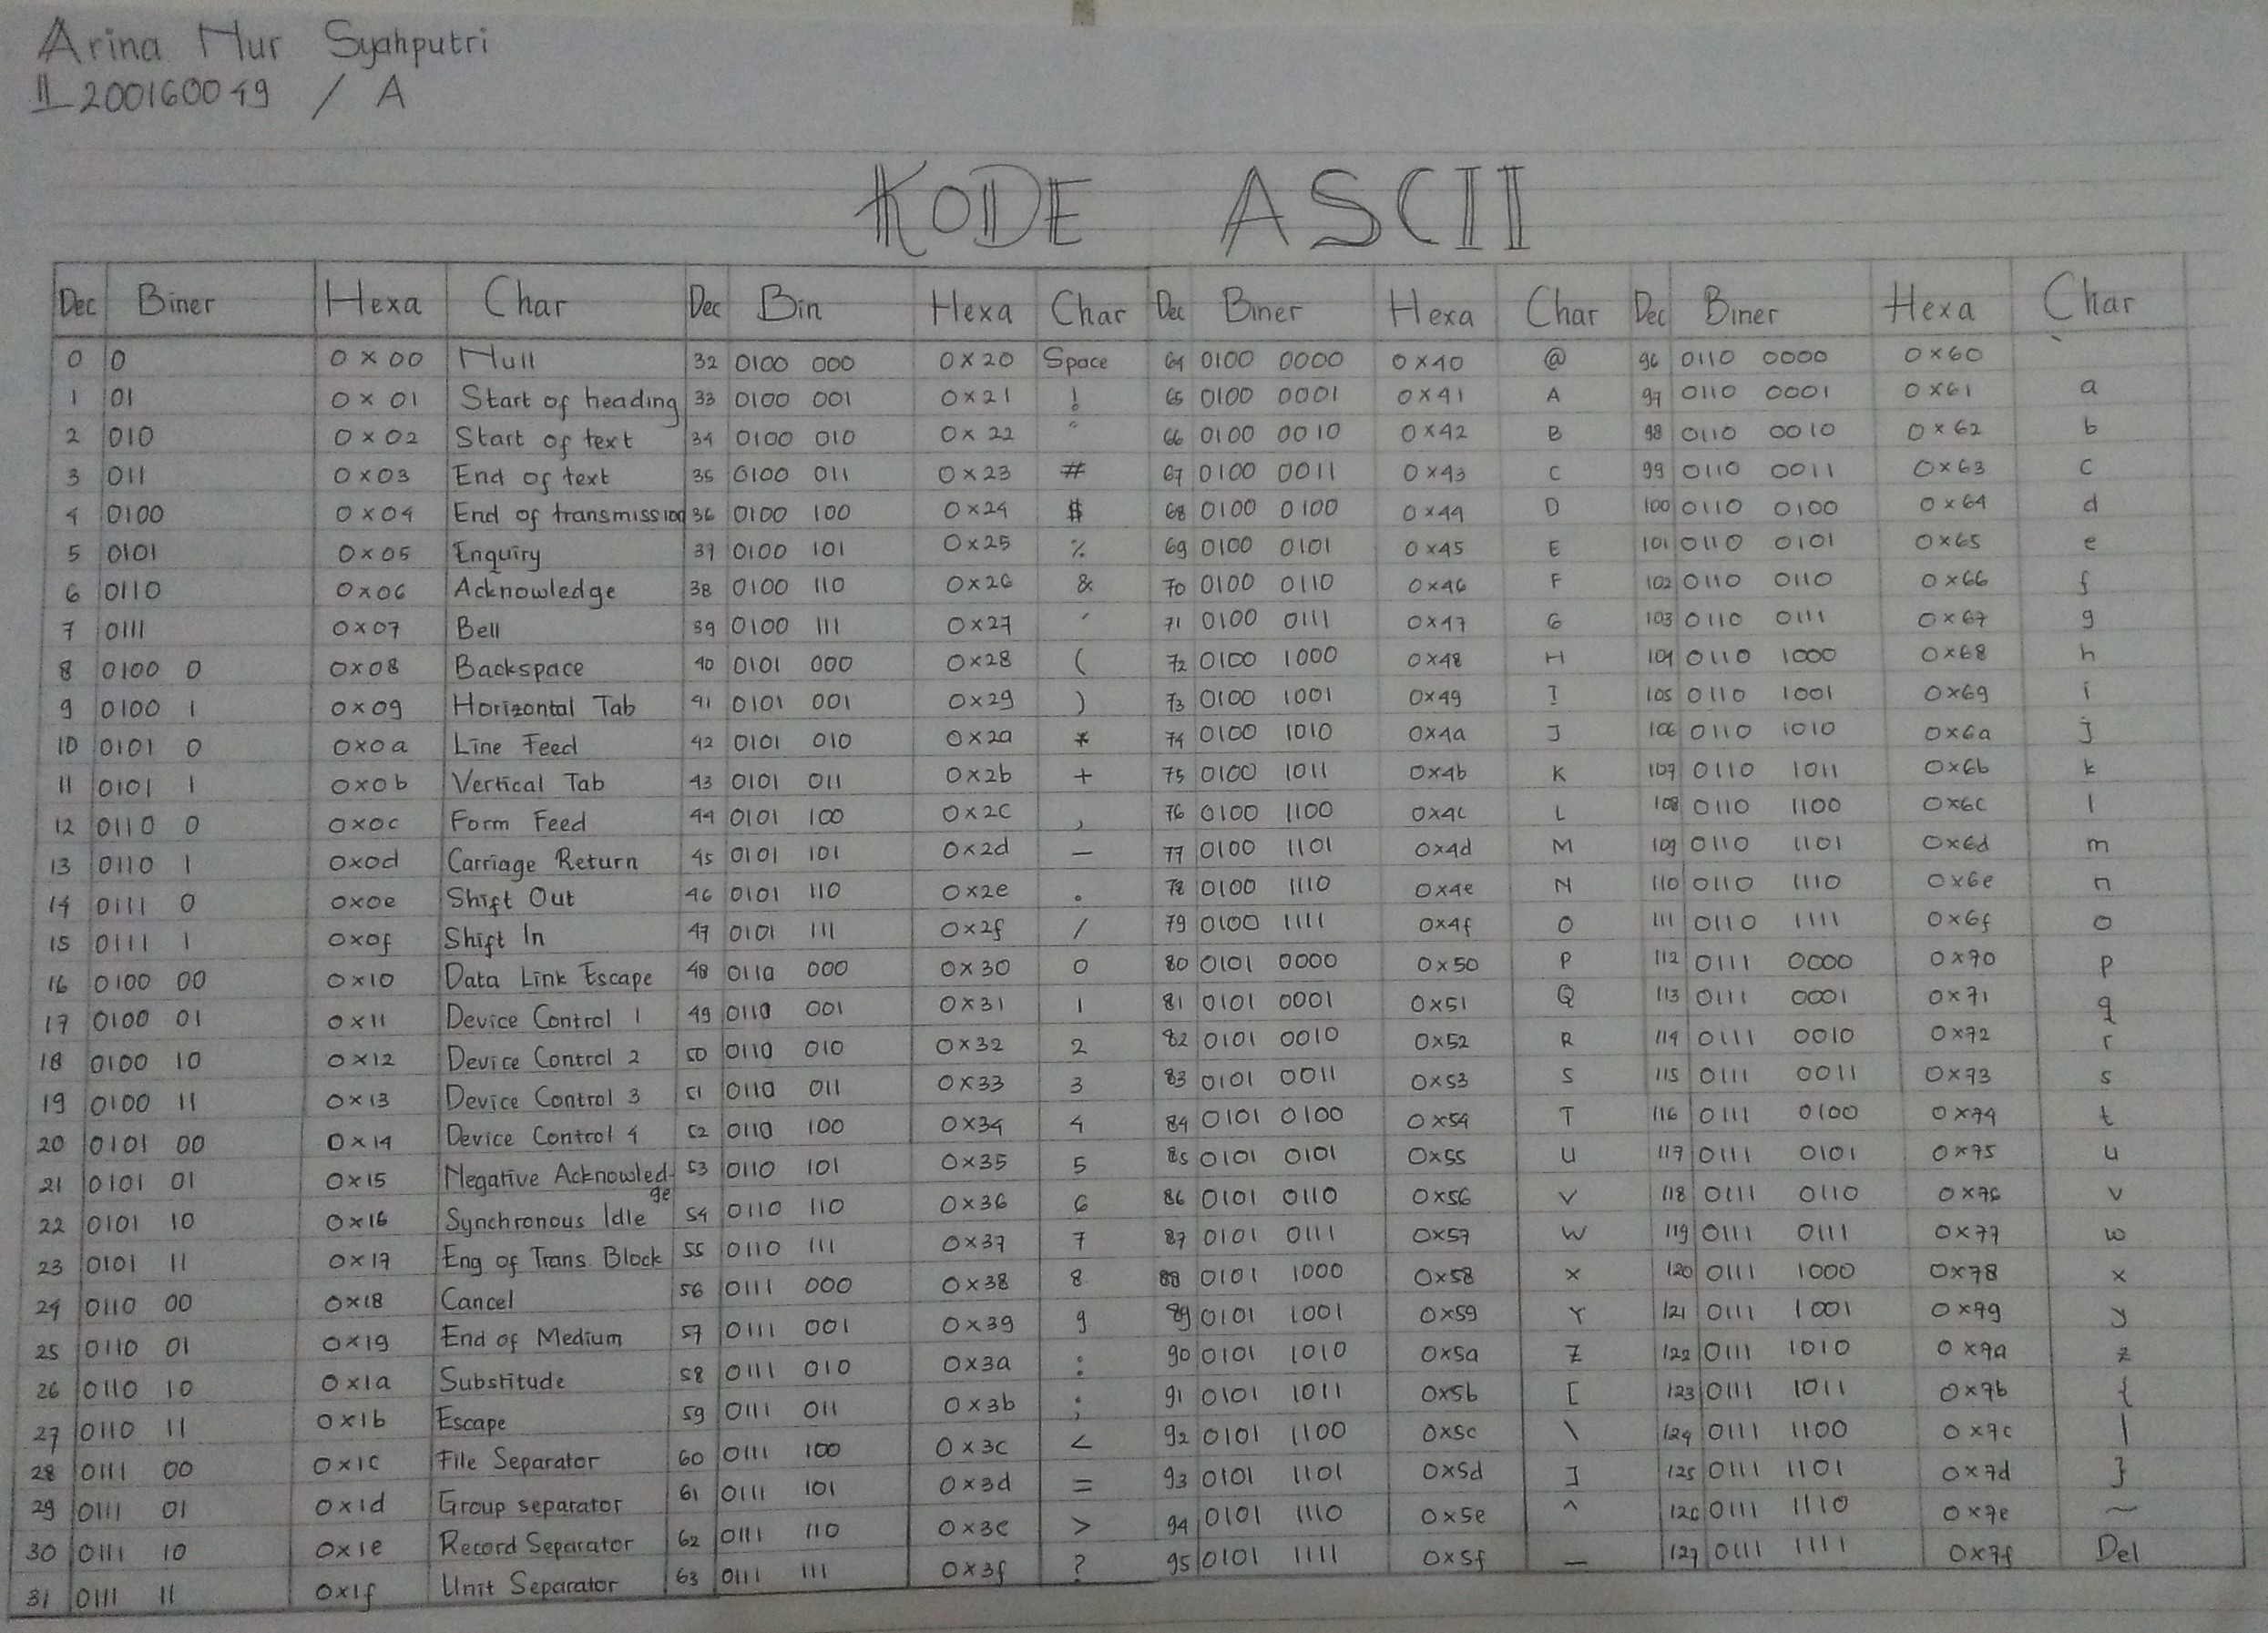 Arina Nur Syahputri
L200160049 / A
KODE ASCII
Dec Biner Hexa Char Dec Bin Hexa Char Dec Biner Hexa Char Dec Biner Hexa Char
0 0 0x00 Null 32 0100 000 0x20 Space 64 0100 0000 0x40 @ 96 0110 0000 0x60 `
1 01 0x01 Start of heading 33 0100 001 0x21 ! 65 0100 0001 0x41 A 97 0110 0001 0x61 a
2 010 0x02 Start of text 34 0100 010 0x22 " 66 0100 0010 0x42 B 98 0110 0010 0x62 b
3 011 0x03 End of text 35 0100 011 0x23 # 67 0100 0011 0x43 C 99 0110 0011 0x63 c
4 0100 0x04 End of transmission 36 0100 100 0x24 $ 68 0100 0100 0x44 D 100 0110 0100 0x64 d
5 0101 0x05 Enquiry 37 0100 101 0x25 % 69 0100 0101 0x45 E 101 0110 0101 0x65 e
6 0110 0x06 Acknowledge 38 0100 110 0x26 & 70 0100 0110 0x46 F 102 0110 0110 0x66 f
7 0111 0x07 Bell 39 0100 111 0x27 ' 71 0100 0111 0x47 G 103 0110 0111 0x67 g
8 0100 0 0x08 Backspace 40 0101 000 0x28 ( 72 0100 1000 0x48 H 104 0110 1000 0x68 h
9 0100 1 0x09 Horizontal Tab 41 0101 001 0x29 ) 73 0100 1001 0x49 I 105 0110 1001 0x69 i
10 0101 0 0x0a Line Feed 42 0101 010 0x2a * 74 0100 1010 0x4a J 106 0110 1010 0x6a j
11 0101 1 0x0b Vertical Tab 43 0101 011 0x2b + 75 0100 1011 0x4b K 107 0110 1011 0x6b k
12 0110 0 0x0c Form Feed 44 0101 100 0x2c , 76 0100 1100 0x4c L 108 0110 1100 0x6c l
13 0110 1 0x0d Carriage Return 45 0101 101 0x2d - 77 0100 1101 0x4d M 109 0110 1101 0x6d m
14 0111 0 0x0e Shift Out 46 0101 110 0x2e . 78 0100 1110 0x4e N 110 0110 1110 0x6e n
15 0111 1 0x0f Shift In 47 0101 111 0x2f / 79 0100 1111 0x4f O 111 0110 1111 0x6f o
16 0100 00 0x10 Data Link Escape 48 0110 000 0x30 0 80 0101 0000 0x50 P 112 0111 0000 0x70 p
17 0100 01 0x11 Device Control 1 49 0110 001 0x31 1 81 0101 0001 0x51 Q 113 0111 0001 0x71 q
18 0100 10 0x12 Device Control 2 50 0110 010 0x32 2 82 0101 0010 0x52 R 114 0111 0010 0x72 r
19 0100 11 0x13 Device Control 3 51 0110 011 0x33 3 83 0101 0011 0x53 S 115 0111 0011 0x73 s
20 0101 00 0x14 Device Control 4 52 0110 100 0x34 4 84 0101 0100 0x54 T 116 0111 0100 0x74 t
21 0101 01 0x15 Negative Acknowled- 53 0110 101 0x35 5 85 0101 0101 0x55 U 117 0111 0101 0x75 u
ge
22 0101 10 0x16 Synchronous Idle 54 0110 110 0x36 6 86 0101 0110 0x56 V 118 0111 0110 0x76 v
23 0101 11 0x17 Eng of Trans Block 55 0110 111 0x37 7 87 0101 0111 0x57 W 119 0111 0111 0x77 w
24 0110 00 0x18 Cancel 56 0111 000 0x38 8 88 0101 1000 0x58 X 120 0111 1000 0x78 x
25 0110 01 0x19 End of Medium 57 0111 001 0x39 9 89 0101 1001 0x59 Y 121 0111 1001 0x79 y
26 0110 10 0x1a Substitude 58 0111 010 0x3a : 90 0101 1010 0x5a Z 122 0111 1010 0x7a z
27 0110 11 0x1b Escape 59 0111 011 0x3b ; 91 0101 1011 0x5b [ 123 0111 1011 0x7b {
28 0111 00 0x1c File Separator 60 0111 100 0x3c < 92 0101 1100 0x5c \ 124 0111 1100 0x7c |
29 0111 01 0x1d Group separator 61 0111 101 0x3d = 93 0101 1101 0x5d ] 125 0111 1101 0x7d }
30 0111 10 0x1e Record Separator 62 0111 110 0x3e > 94 0101 1110 0x5e ^ 126 0111 1110 0x7e ~
31 0111 11 0x1f Unit Separator 63 0111 111 0x3f ? 95 0101 1111 0x5f _ 127 0111 1111 0x7f Del